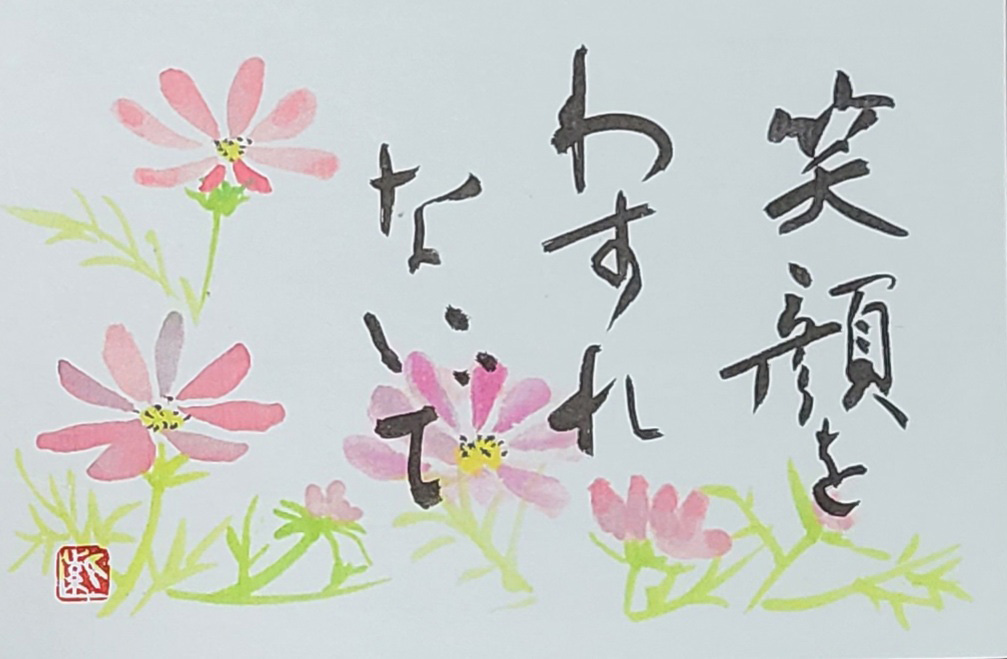 笑顔を
わすれ
ないで